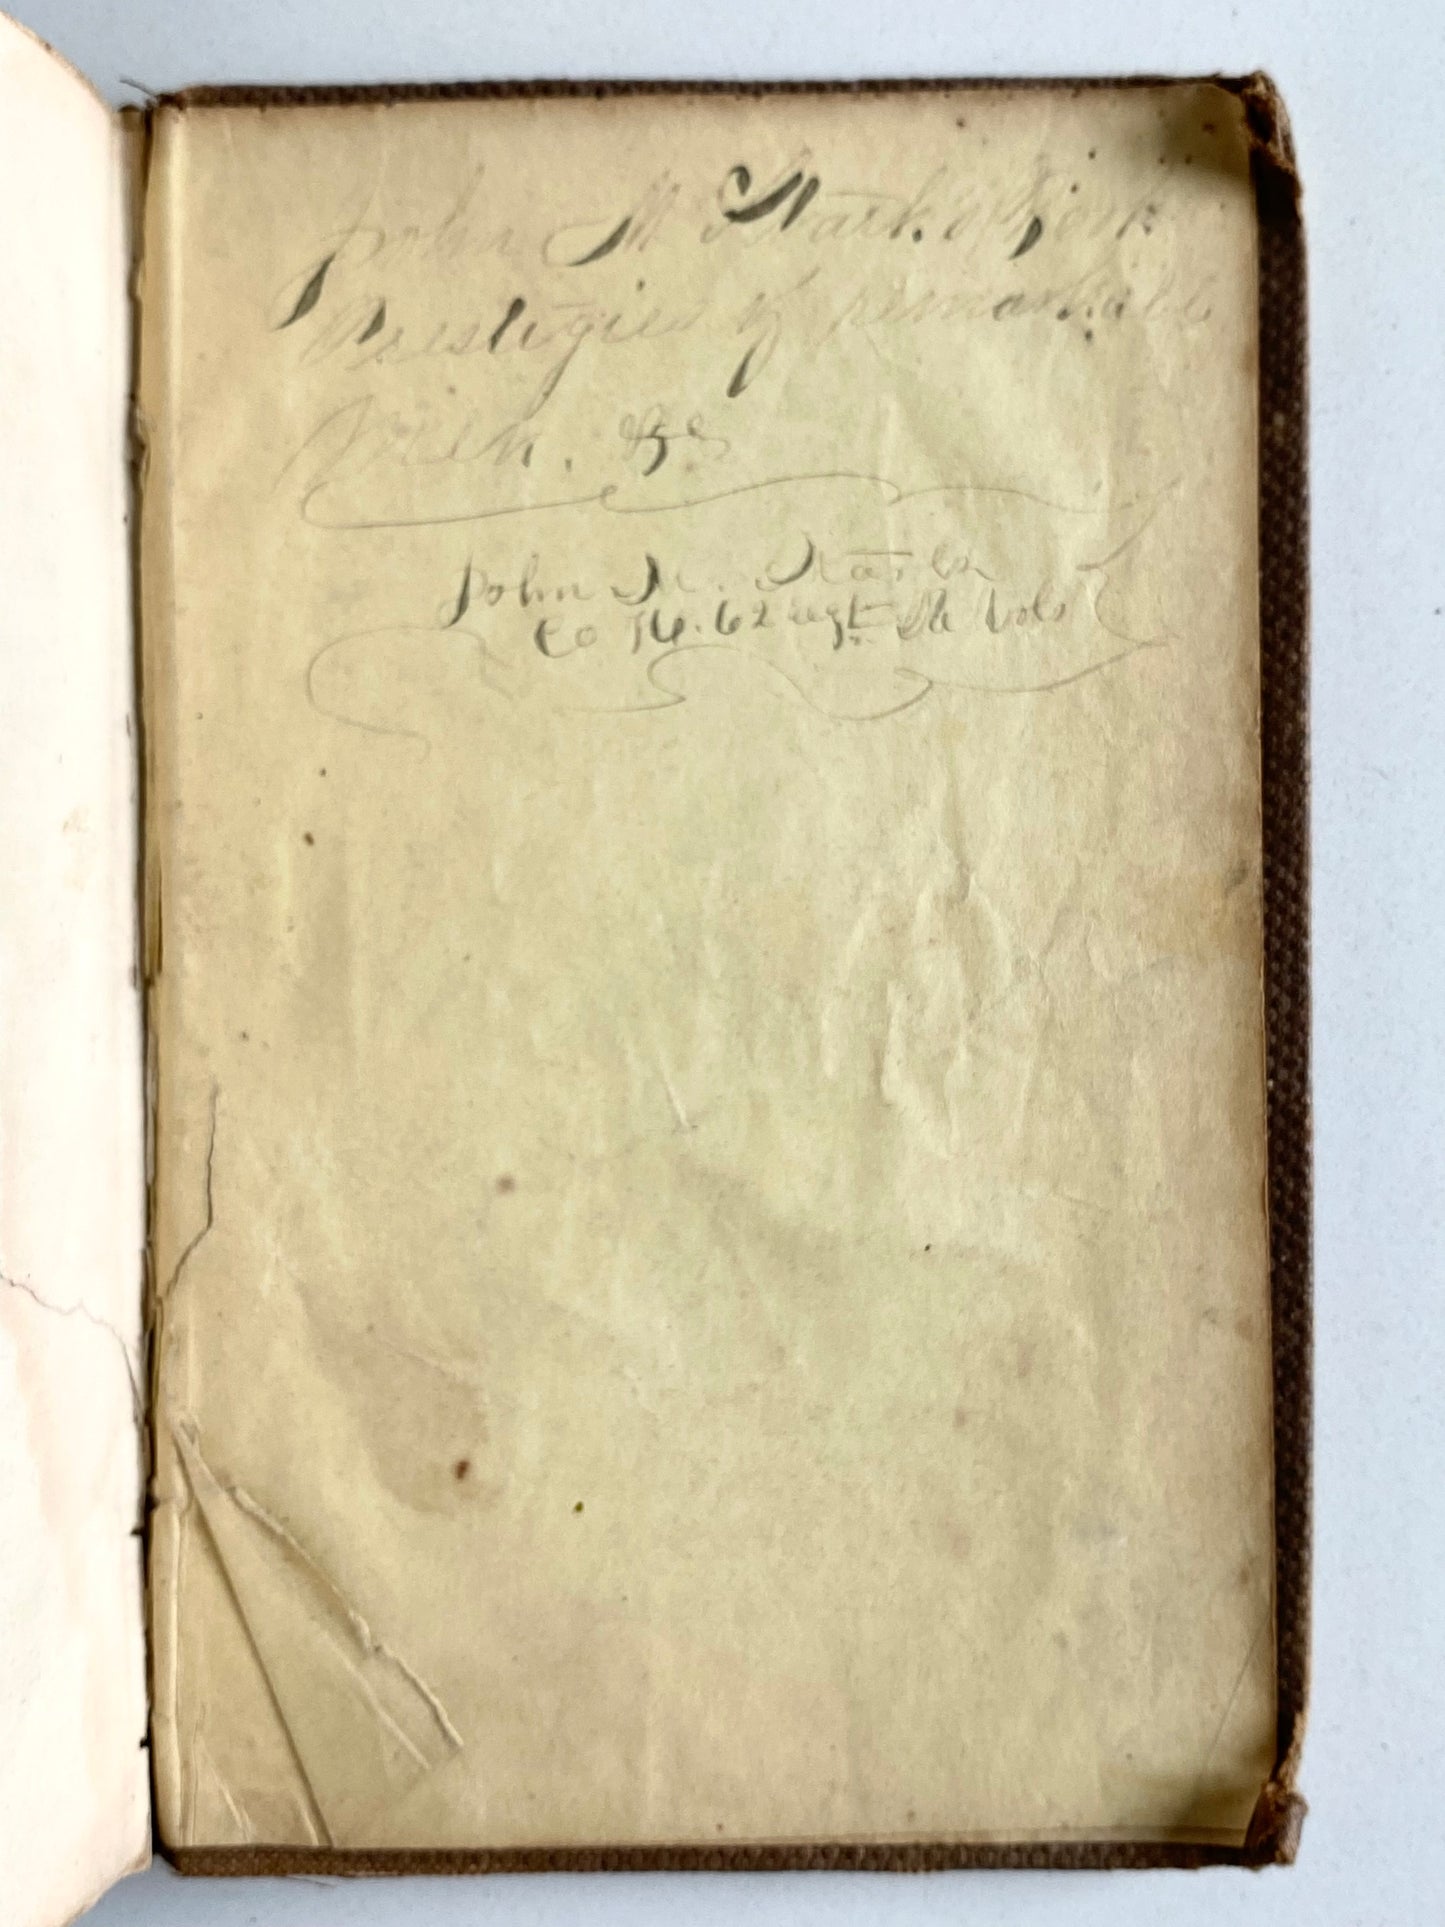 John M Stark's Book
Prestigies of remarkable
Men. &c
John M. Stark
Co K. 62 regt Vols